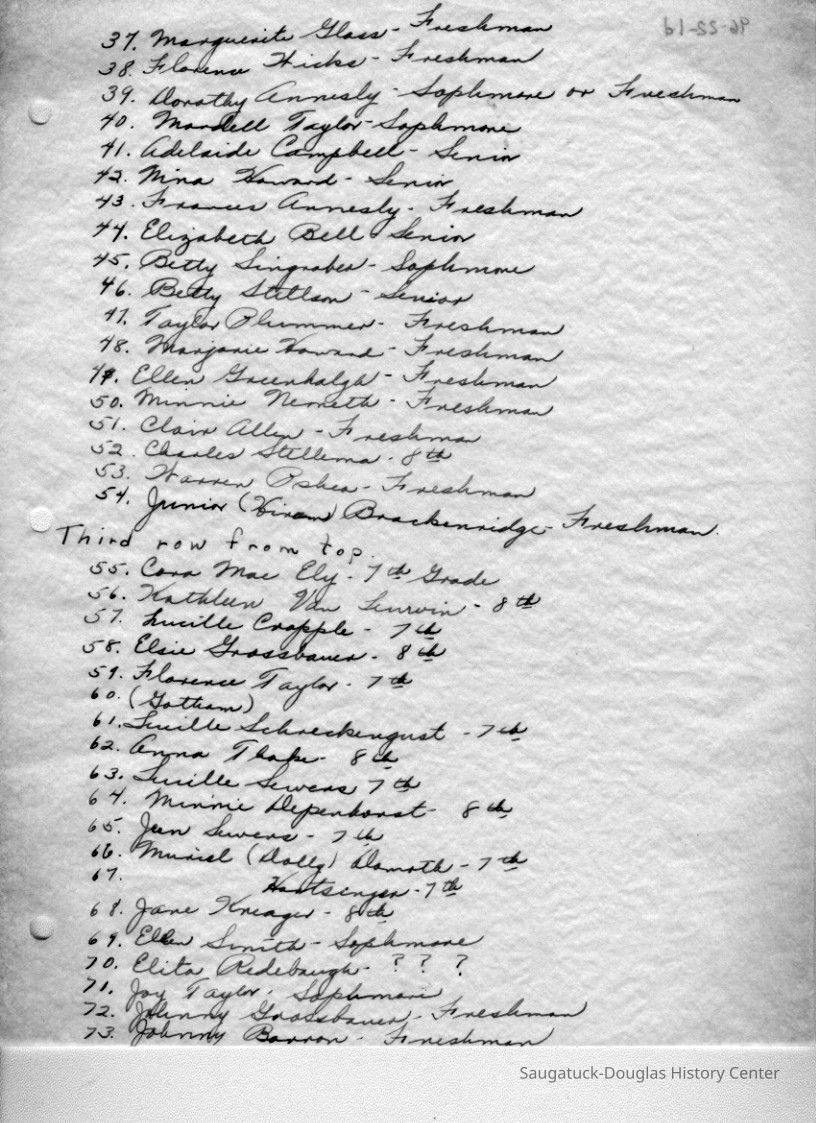 96-22-19
37. Marguerite Glass - Freshman
38. Florence Hicks - Freshman
39. Dorothy Annesly - Sophmore or Freshman
40. Mandell Taylor - Sophmore
41. Adelaide Campbell - Senior
42. Nina Howard - Senior
43. Frances Annesly - Freshman
44. Elizabeth Bell - Senior
45. Betty - Sophmore
46. Betty Stillson - Senior
47. Taylor Plummer - Freshman
48. Marjorie Howard - Freshman
49. Ellen Greenhalgh - Freshman
50. Minnie Nemeth - Freshman
51. Clair Allen - Freshman
52. Charles - 8th
53. Warren - Freshman
54. Junior (Hiram) Brackenridge - Freshman.
Third row from top.
55. Cora Mae Ely - 7th Grade
56. Kathleen Van - 8th
57. Lucille Crapple - 7th
58. Elsie Grossbauer - 8th
59. Florence Taylor - 7th
60. (Gotham)
61. Lucille Schreckengust - 7th
62. Anna - 8th
63. Lucille Sewers 7th
64. Minnie Depenhorst - 8th
65. Jean Sewers - 7th
66. Muriel (Dolly) - 7th
67. - 7th
68. Jane Kreager - 8th
69. Ellen Smith - Sophmore
70. Elita Redebaugh - ? ? ?
71. Joy Taylor - Sophmore
72. Johnny Grossbauer - Freshman
73. Johnny Barron - Freshman
Saugatuck-Douglas History Center